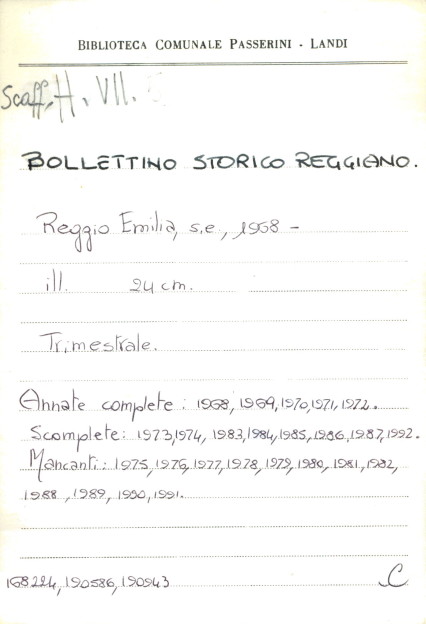 BIBLIOTECA COMUNALE PASSERINI - LANDI
Scaff. H. VII.
BOLLETTINO STORICO REGGIANO.
Reggio Emilia, s.e., 1968 -
ill. 24 cm.
Trimestrale.
Annate complete: 1968, 1969, 1970, 1971, 1972.
Scomplete: 1973, 1974, 1983, 1984, 1985, 1986, 1987, 1992.
Mancanti: 1975, 1976, 1977, 1978, 1979, 1980, 1981, 1982,
1988, 1989, 1990, 1991.
168224, 190586, 190943 C